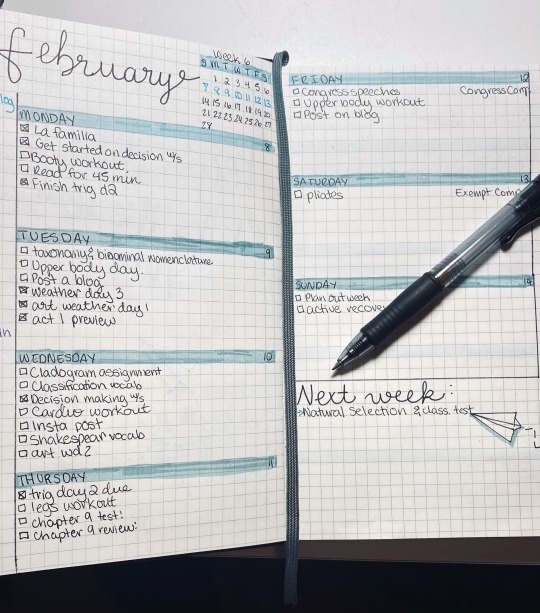 february
Week 6
S M T W T F S
1 2 3 4 5 6
7 8 9 10 11 12 13
14 15 16 17 18 19 20
21 22 23 24 25 26 27
28
log
MONDAY 8
La familia
Get started on decision w/s
Booty workout.
Read for 45 min
Finish trig d2
TUESDAY 9
taxonomy & binominal nomenclature
Upper body day.
Post a blog
weather day 3
art weather day 1
act 1 preview
in
WEDNESDAY 10
Cladogram assignment
Classification vocab
Decision making w/s
Cardio workout
Insta post
Shakespear vocab
art wd2
THURSDAY 11
trig day 2 due
legs workout
chapter 9 test!
chapter 9 review!
FRIDAY 12
Congress speeches Congress Comp.
Upper body workout
Post on blog
SATURDAY 13
pliates Exempt Comp
SUNDAY 14
Plan out week
active recove
Next week:
Natural Selection & class. test